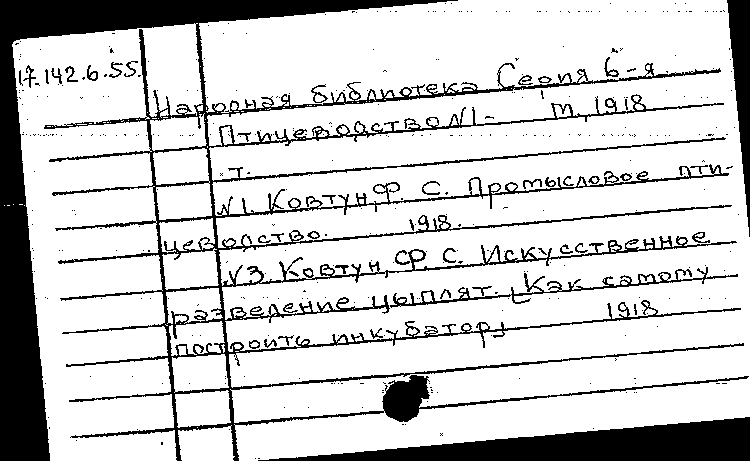 17.142.6.55.
Народная библиотека Серия 6-я
Птицеводство №1- М., 1918
т.
№1. Ковтун, Ф. С. Промысловое пти-
цеводство. 1918.
№3. Ковтун, Ф. С. Искусственное
разведение цыплят. [Как самому
построить инкубатор] 1918